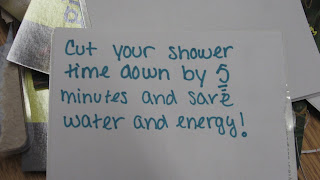 Cut your shower
time down by 5
minutes and save
water and energy!